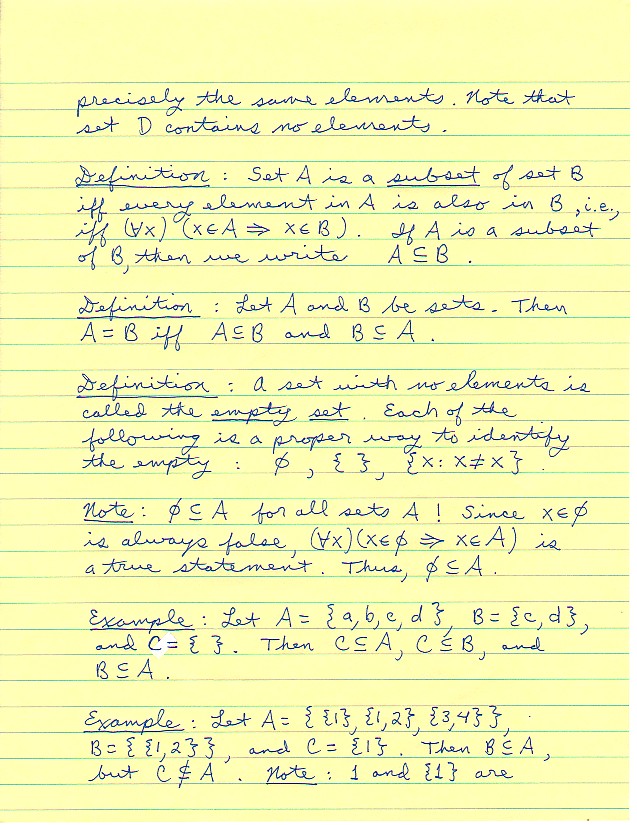 precisely the same elements. Note that
set D contains no elements.
Definition : Set A is a subset of set B
iff every element in A is also in B, i.e.,
iff (∀x) (x∈A ⇒ x∈B). If A is a subset
of B, then we write A ⊆ B .
Definition : Let A and B be sets. Then
A = B iff A⊆B and B ⊆ A .
Definition : A set with no elements is
called the empty set . Each of the
following is a proper way to identify
the empty : ∅ , { } , {x: x≠x} .
Note : ∅ ⊆ A for all sets A ! Since x∈∅
is always false, (∀x)(x∈∅ ⇒ x∈A) is
a true statement. Thus, ∅ ⊆ A .
Example : Let A = {a, b, c, d}, B = {c, d},
and C = { } . Then C⊆A, C⊆B, and
B ⊆ A .
Example : Let A = { {1}, {1,2}, {3,4} },
B = { {1,2} }, and C = {1} . Then B⊆A,
but C ⊈ A . Note : 1 and {1} are